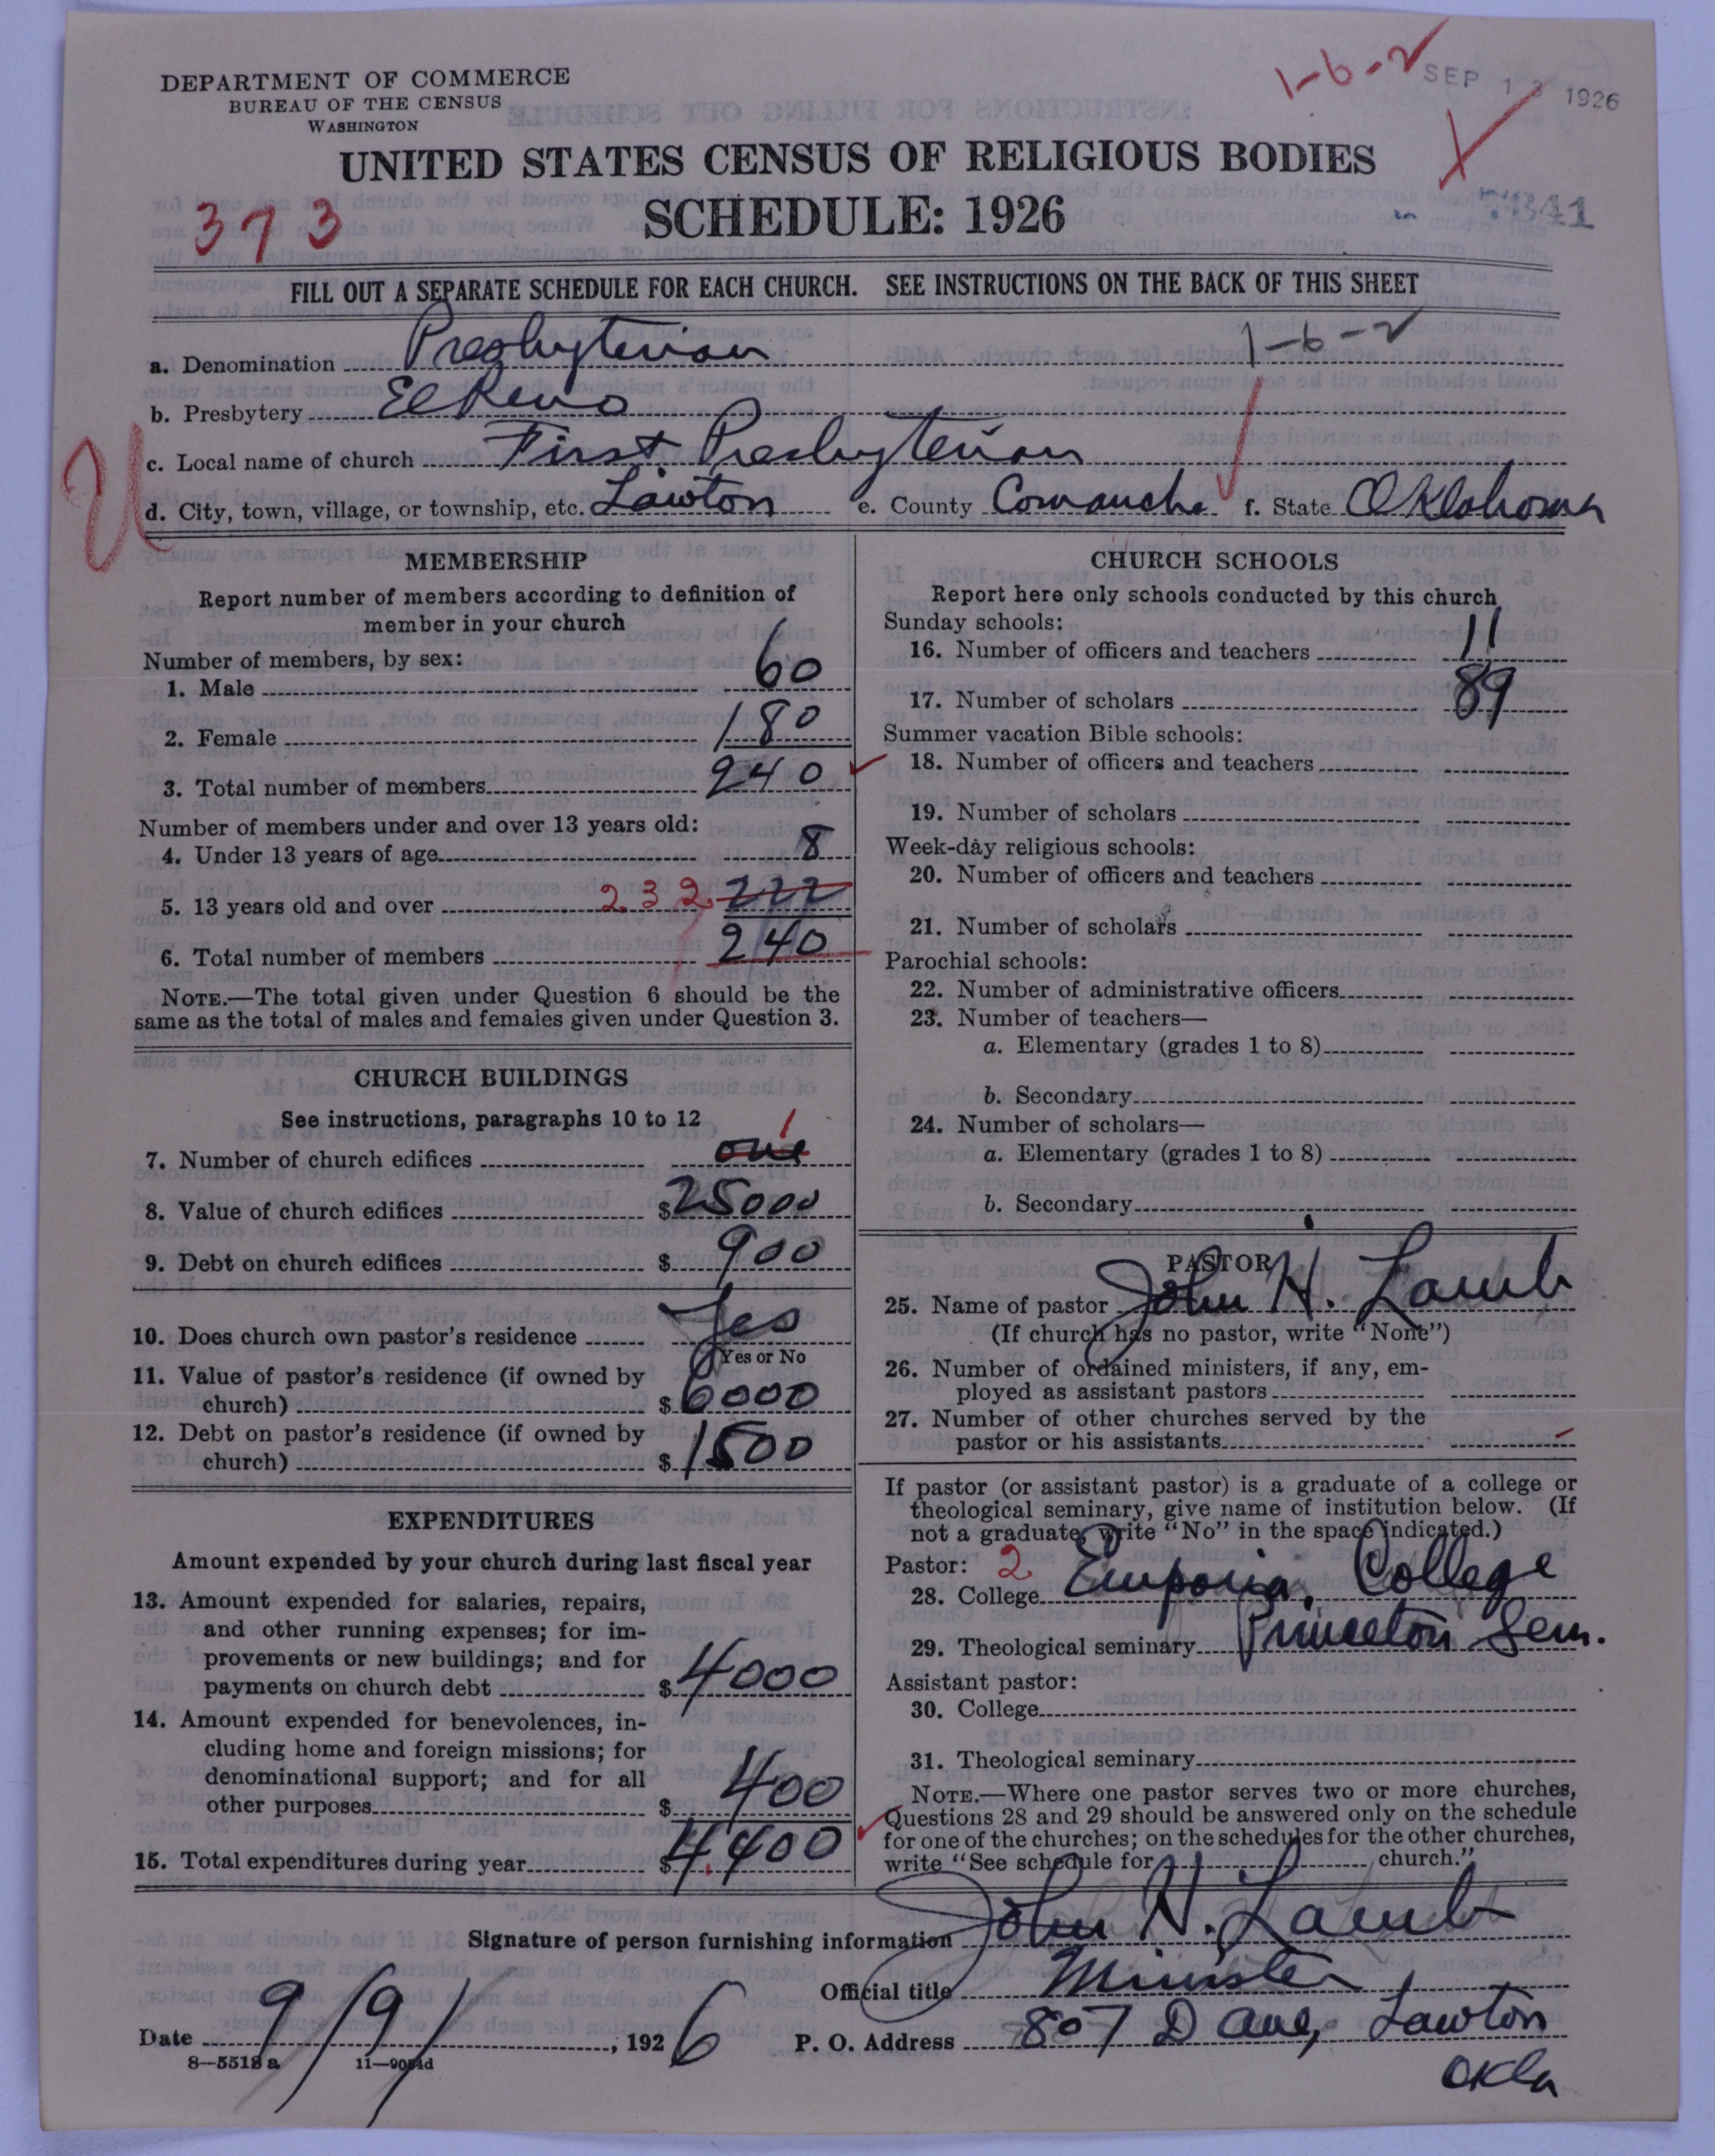 DEPARTMENT OF COMMERCE
BUREAU OF THE CENSUS
WASHINGTON
1-6-2
SEP 13 1926
UNITED STATES CENSUS OF RELIGIOUS BODIES
SCHEDULE: 1926
373
FILL OUT A SEPARATE SCHEDULE FOR EACH CHURCH. SEE INSTRUCTIONS ON THE BACK OF THIS SHEET
a. Denomination Presbyterian 1-6-2
b. Presbytery El Reno
c. Local name of church First Presbyterian
d. City, town, village, or township, etc. Lawton e. County Comanche f. State Oklahoma
MEMBERSHIP
Report number of members according to definition of
member in your church
Number of members, by sex:
1. Male 60
2. Female 180
3. Total number of members 240
Number of members under and over 13 years old:
4. Under 13 years of age 8
5. 13 years old and over 232 222
6. Total number of members 240
NOTE.—The total given under Question 6 should be the
same as the total of males and females given under Question 3.
CHURCH BUILDINGS
See instructions, paragraphs 10 to 12
1
7. Number of church edifices one
8. Value of church edifices $25000
9. Debt on church edifices $ 900
10. Does church own pastor's residence Yes
Yes or No
11. Value of pastor's residence (if owned by
church) $ 6000
12. Debt on pastor's residence (if owned by
church) $ 1500
EXPENDITURES
Amount expended by your church during last fiscal year
13. Amount expended for salaries, repairs,
and other running expenses; for im-
provements or new buildings; and for
payments on church debt $ 4000
14. Amount expended for benevolences, in-
cluding home and foreign missions; for
denominational support; and for all
other purposes $ 400
15. Total expenditures during year $ 4,400
CHURCH SCHOOLS
Report here only schools conducted by this church
Sunday schools:
16. Number of officers and teachers 11
17. Number of scholars 89
Summer vacation Bible schools:
18. Number of officers and teachers
19. Number of scholars
Week-day religious schools:
20. Number of officers and teachers
21. Number of scholars
Parochial schools:
22. Number of administrative officers
23. Number of teachers—
a. Elementary (grades 1 to 8)
b. Secondary
24. Number of scholars—
a. Elementary (grades 1 to 8)
b. Secondary
PASTOR
25. Name of pastor John H. Lamb
(If church has no pastor, write "None")
26. Number of ordained ministers, if any, em-
ployed as assistant pastors
27. Number of other churches served by the
pastor or his assistants
If pastor (or assistant pastor) is a graduate of a college or
theological seminary, give name of institution below. (If
not a graduate, write "No" in the space indicated.)
Pastor: 2
28. College Emporia College
29. Theological seminary Princeton Sem.
Assistant pastor:
30. College
31. Theological seminary
NOTE.—Where one pastor serves two or more churches,
Questions 28 and 29 should be answered only on the schedule
for one of the churches; on the schedules for the other churches,
write "See schedule for church."
Signature of person furnishing information John H. Lamb
Official title Minister
Date 9/9/, 1926 P. O. Address 807 D ave, Lawton
Okla
8—5518 a 11—9054d